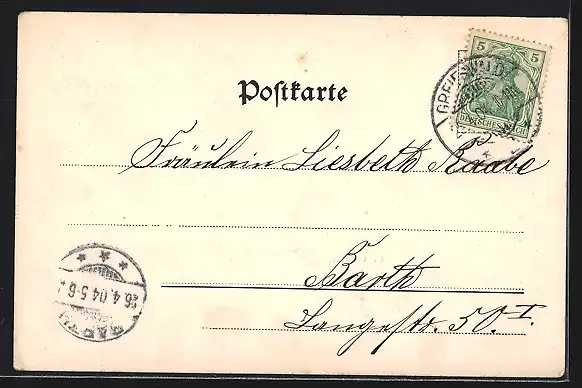 Postkarte
5 5
DEUTSCHES REICH
GREIFSWALD
Fräulein Liesbeth Raabe
Barth
Langestr. 50.I.
26.4.04 5-6
BARTH